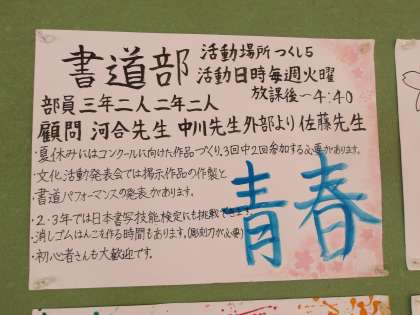 書道部
活動場所 つくし5
活動日時 毎週火曜
放課後～4:40
部員 三年二人 二年二人
顧問 河合先生 中川先生 外部より 佐藤先生
・夏休みにはコンクールに向けた作品づくり。3回中2回参加する必要があります。
・文化活動発表会では掲示作品の作製と
書道パフォーマンスの発表があります。
・2・3年では日本書写技能検定にも挑戦できます。
・消しゴムはんこを作る時間もあります。(彫刻刀が必要)
・初心者さんも大歓迎です。
青春